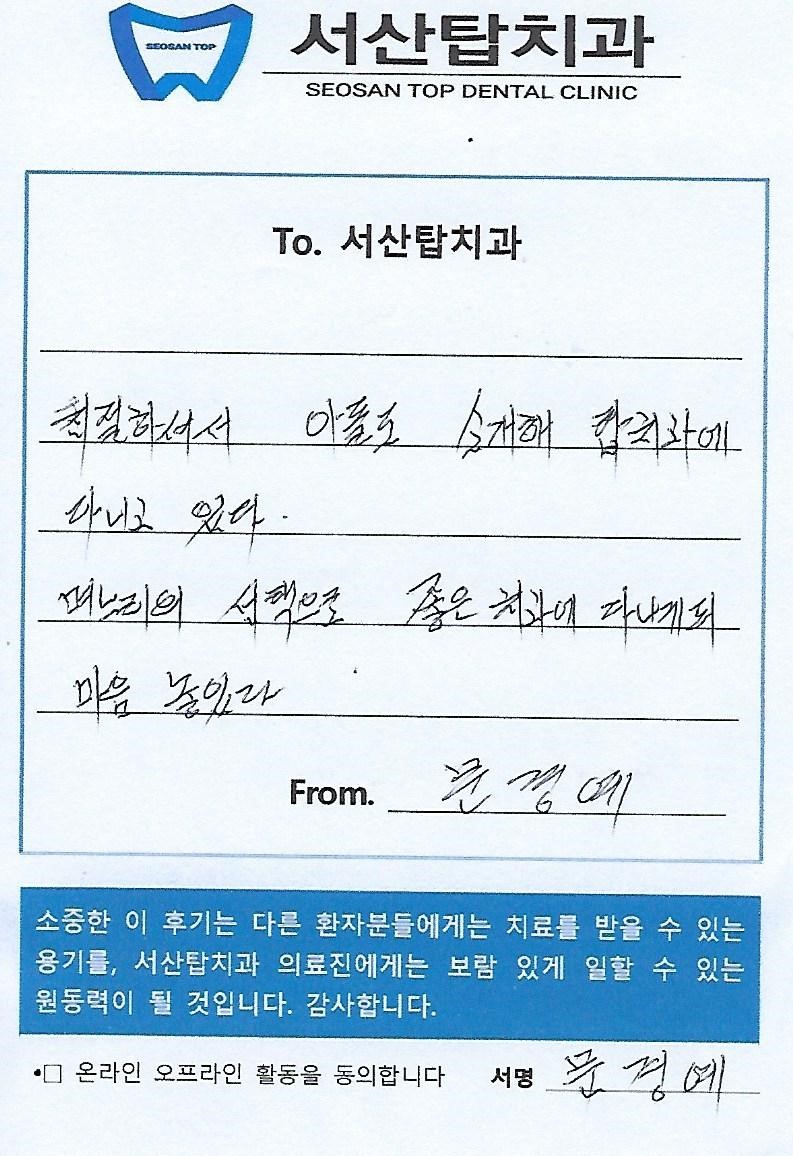 SEOSAN TOP
서산탑치과
SEOSAN TOP DENTAL CLINIC
To. 서산탑치과
친절하셔서 아들도 소개해 탑치과에
다니고 있다.
며느리의 선택으로 좋은 치과에 다니게되
마음 놓있다
From. 문경예
소중한 이 후기는 다른 환자분들에게는 치료를 받을 수 있는
용기를, 서산탑치과 의료진에게는 보람 있게 일할 수 있는
원동력이 될 것입니다. 감사합니다.
•□ 온라인 오프라인 활동을 동의합니다 서명 문경예